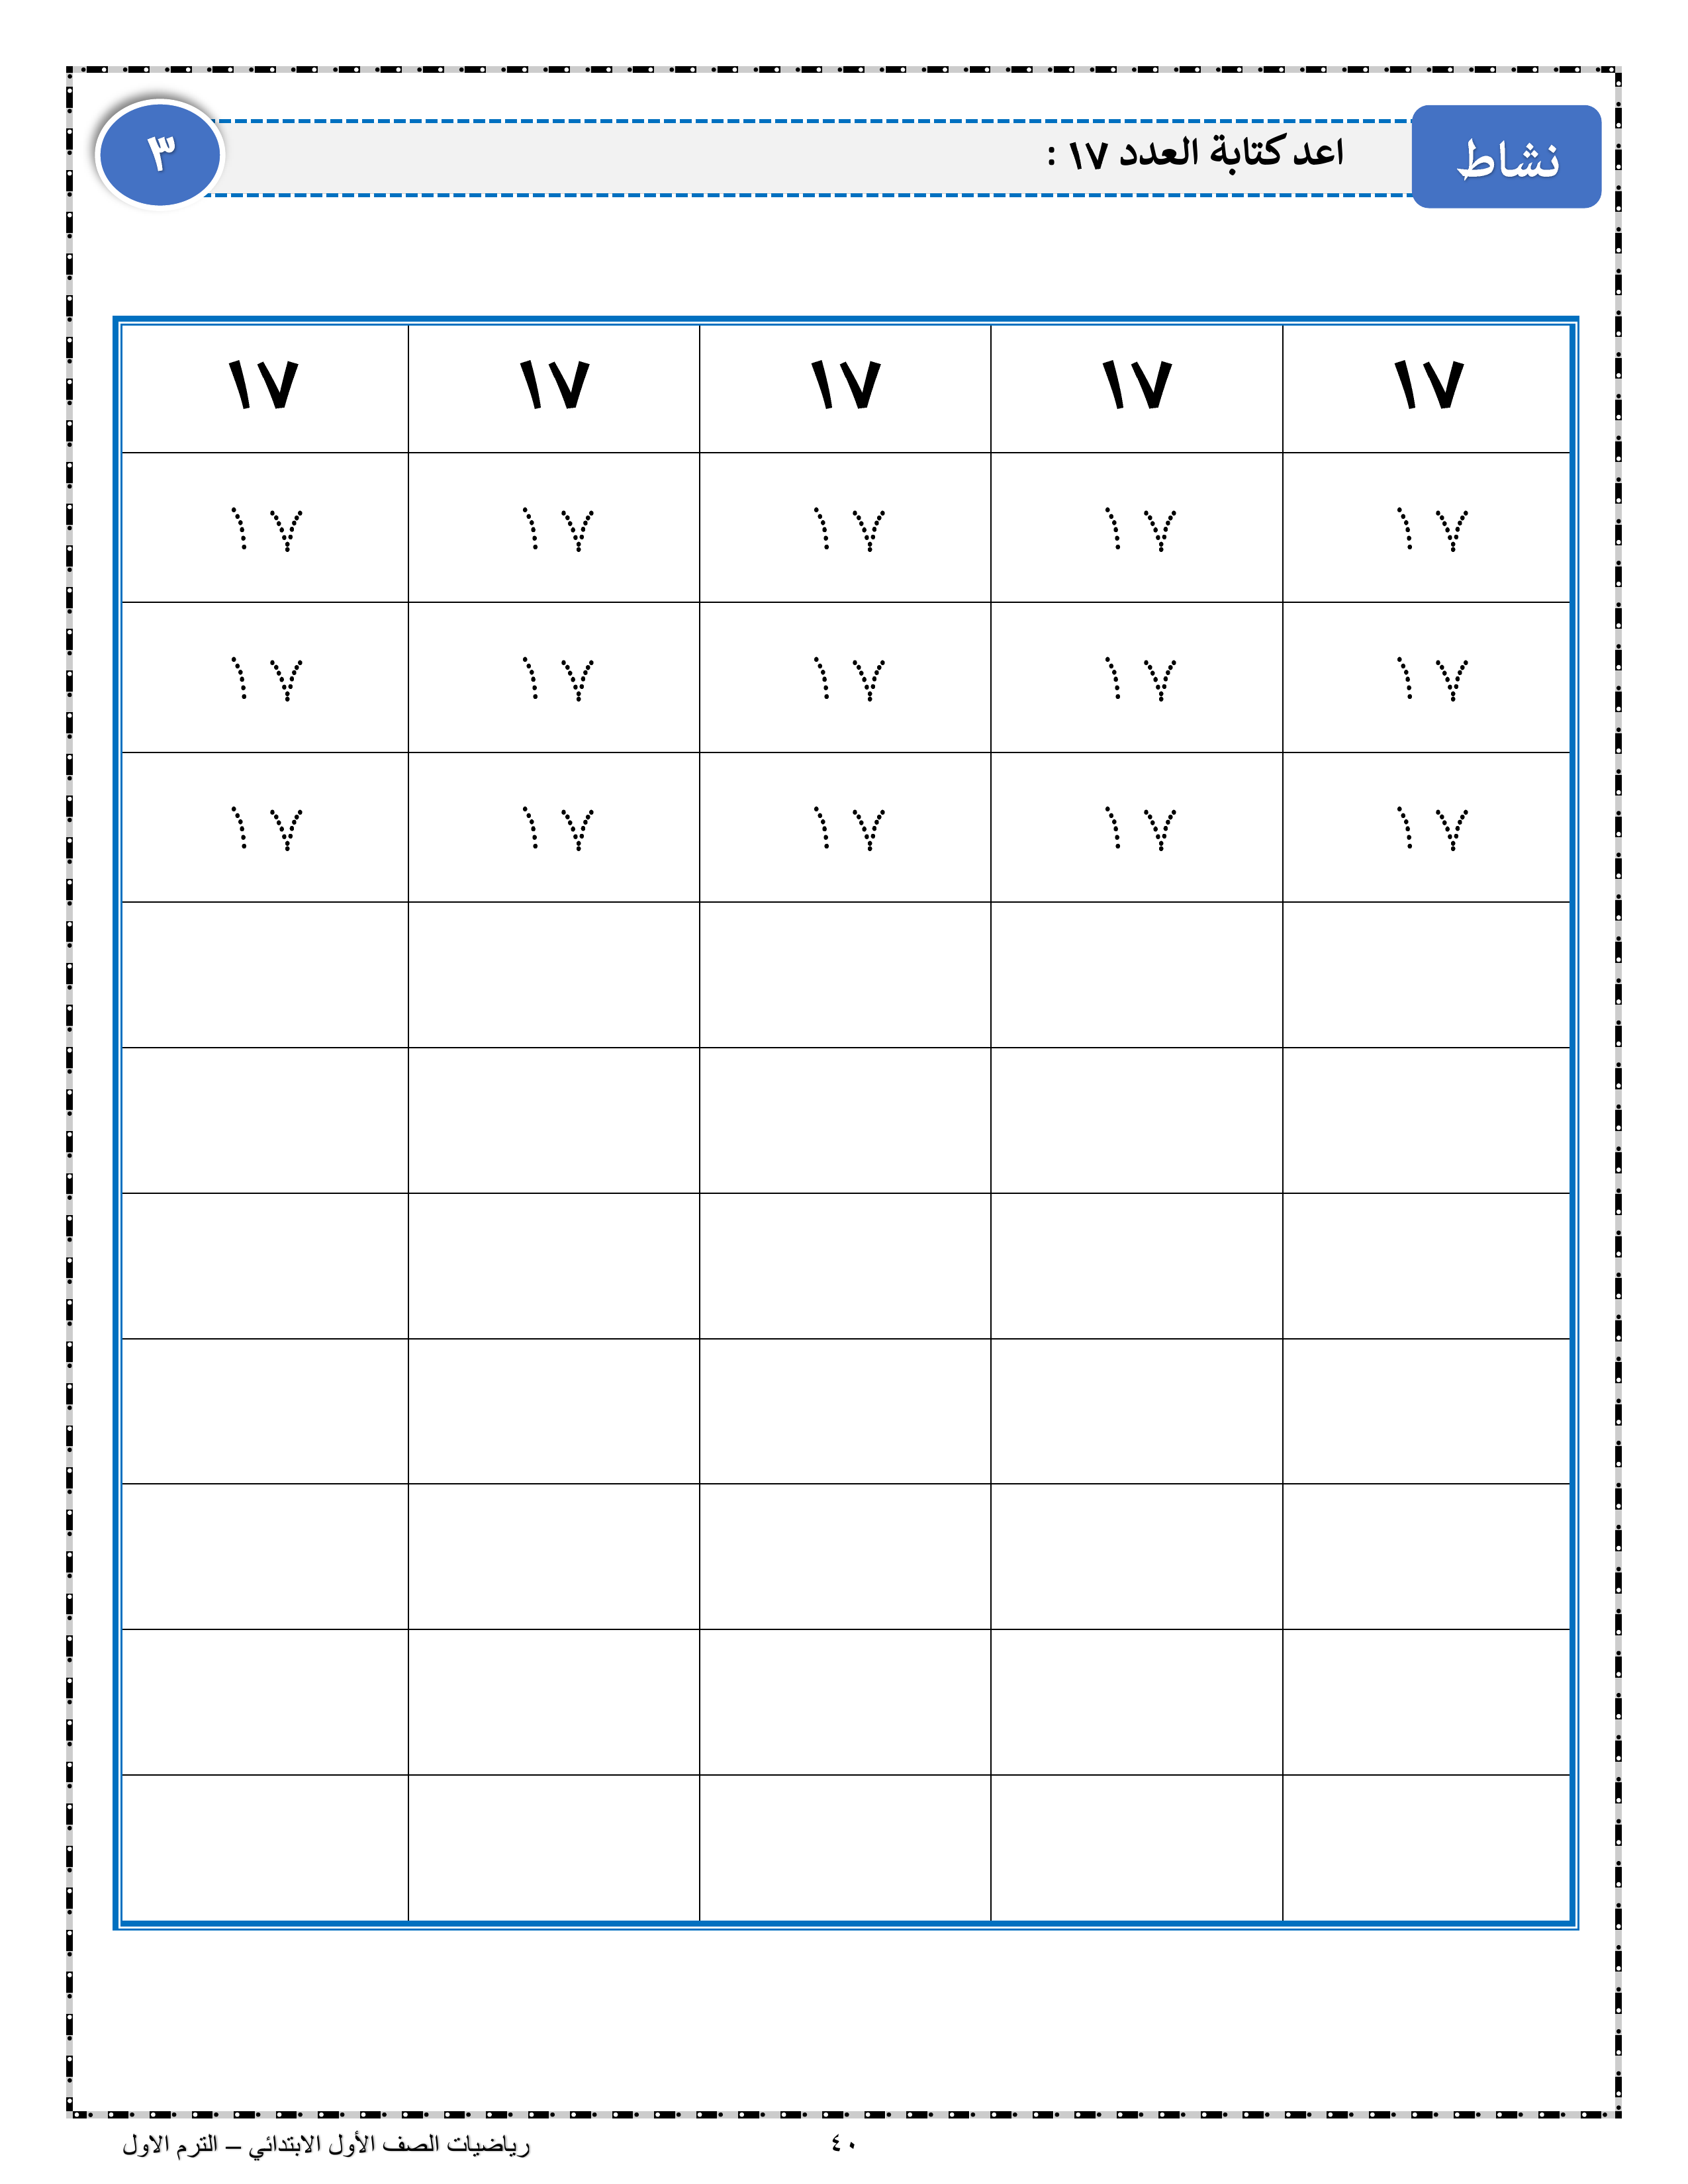 نشاط اعد كتابة العدد ١٧ : ٣
١٧ ١٧ ١٧ ١٧ ١٧
١٧ ١٧ ١٧ ١٧ ١٧
١٧ ١٧ ١٧ ١٧ ١٧
١٧ ١٧ ١٧ ١٧ ١٧
٤٠ رياضيات الصف الأول الابتدائي – الترم الاول